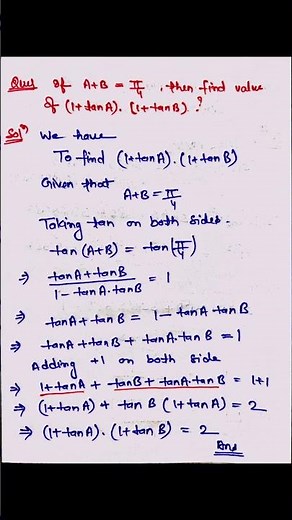 Ques If A+B = π/4, then find value
of (1+tanA).(1+tanB)?
Solⁿ We have
To find (1+tanA).(1+tanB)
Given that
A+B = π/4
Taking tan on both sides.
tan(A+B) = tan(π/4)
⇒ (tanA+tanB)/(1-tanA.tanB) = 1
⇒ tanA+tanB = 1-tanA.tanB
⇒ tanA+tanB+tanA.tanB = 1
Adding +1 on both side
⇒ 1+tanA + tanB+tanA.tanB = 1+1
⇒ (1+tanA) + tanB (1+tanA) = 2
⇒ (1+tanA).(1+tanB) = 2
Ans